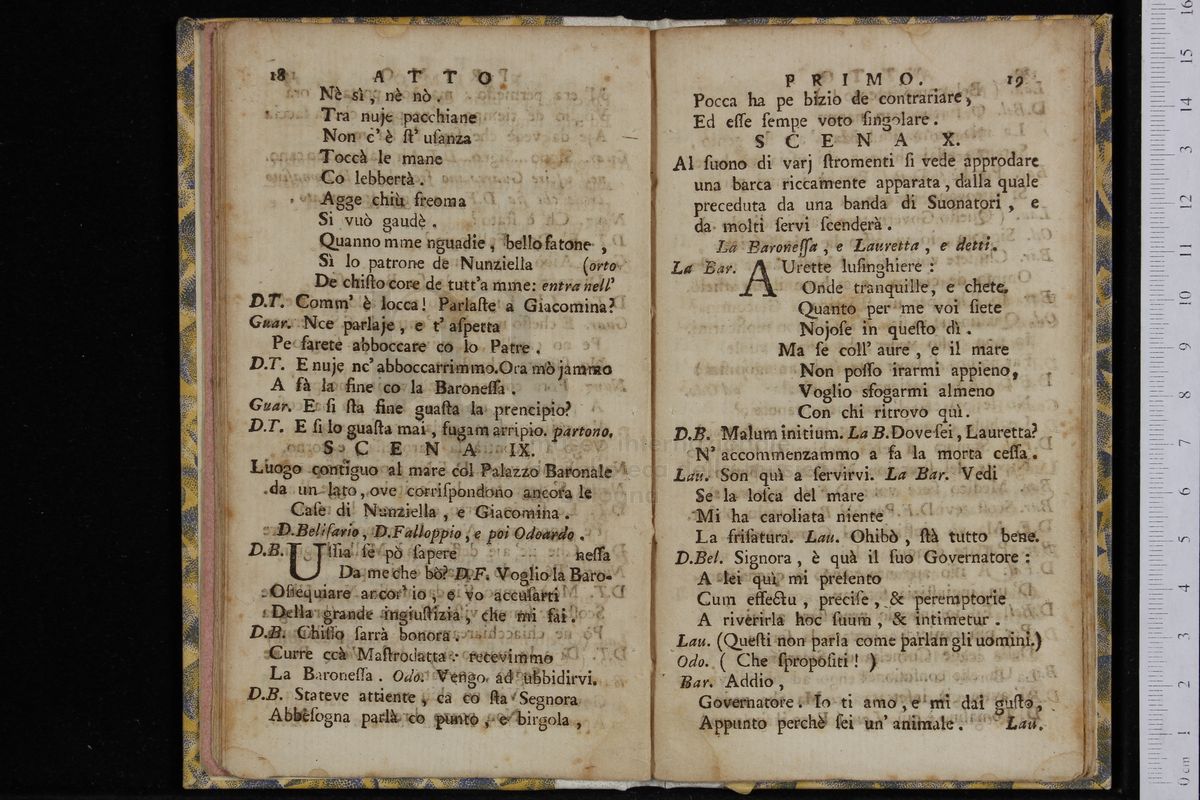 18 ATTO
Nè sì, nè nò.
Tra nuje pacchiane
Non c' è ſt' uſanza
Toccà le mane
Co lebbertà.
Agge chiù freoma
Si vuò gaudè.
Quanno mme nguadie, bello fatone,
Sì lo patrone de Nunziella (orto
De chiſto core de tutt'a mme: entra nell'
D.T. Comm' è locca! Parlaſte a Giacomina?
Guar. Nce parlaje, e t' aſpetta
Pe farete abboccare co lo Patre.
D.T. E nuje nc' abboccarrimmo. Ora mò jammo
A fà la fine co la Baroneſſa.
Guar. E ſi ſta fine guaſta la prencipio?
D.T. E ſi lo guaſta mai, fugam arripio. partono.
SCENA IX.
Luogo contiguo al mare col Palazzo Baronale
da un lato, ove corriſpondono ancora le
Caſe di Nunziella, e Giacomina.
D.Beliſario, D.Falloppio, e poi Odoardo.
D.B. Uſſia ſe pò ſapere neſſa
Da me che bò? D.F. Voglio la Baro-
Oſſequiare ancor' io, e vo accuſarti
Della grande ingiuſtizia, che mi fai.
D.B. Chiſſo ſarrà bonora.
Curre ccà Maſtrodatta: recevimmo
La Baroneſſa. Odo. Vengo ad ubbidirvi.
D.B. Stateve attiente, ca co ſta Segnora
Abbeſogna parlà co punto, e birgola,
PRIMO. 19
Pocca ha pe bizio de contrariare,
Ed eſſe ſempe voto ſingolare.
SCENA X.
Al ſuono di varj ſtromenti ſi vede approdare
una barca riccamente apparata, dalla quale
preceduta da una banda di Suonatori, e
da molti ſervi ſcenderà.
La Baroneſſa, e Lauretta, e detti.
La Bar. AUrette luſinghiere:
Onde tranquille, e chete,
Quanto per me voi ſiete
Nojoſe in queſto dì.
Ma ſe coll' aure, e il mare
Non poſſo irarmi appieno,
Voglio sfogarmi almeno
Con chi ritrovo quì.
D.B. Malum initium. La B. Dove ſei, Lauretta?
N' accommenzammo a fa la morta ceſſa.
Lau. Son quì a ſervirvi. La Bar. Vedi
Se la loſca del mare
Mi ha caroliata niente
La friſatura. Lau. Ohibò, ſtà tutto bene.
D.Bel. Signora, è quà il ſuo Governatore:
A lei quì mi preſento
Cum effectu, preciſe, & peremptorie
A riverirla hoc ſuum, & intimetur.
Lau. (Queſti non parla come parlan gli uomini.)
Odo. (Che ſpropoſiti!)
Bar. Addio,
Governatore. Io ti amo, e mi dai guſto,
Appunto perchè ſei un' animale. Lau.